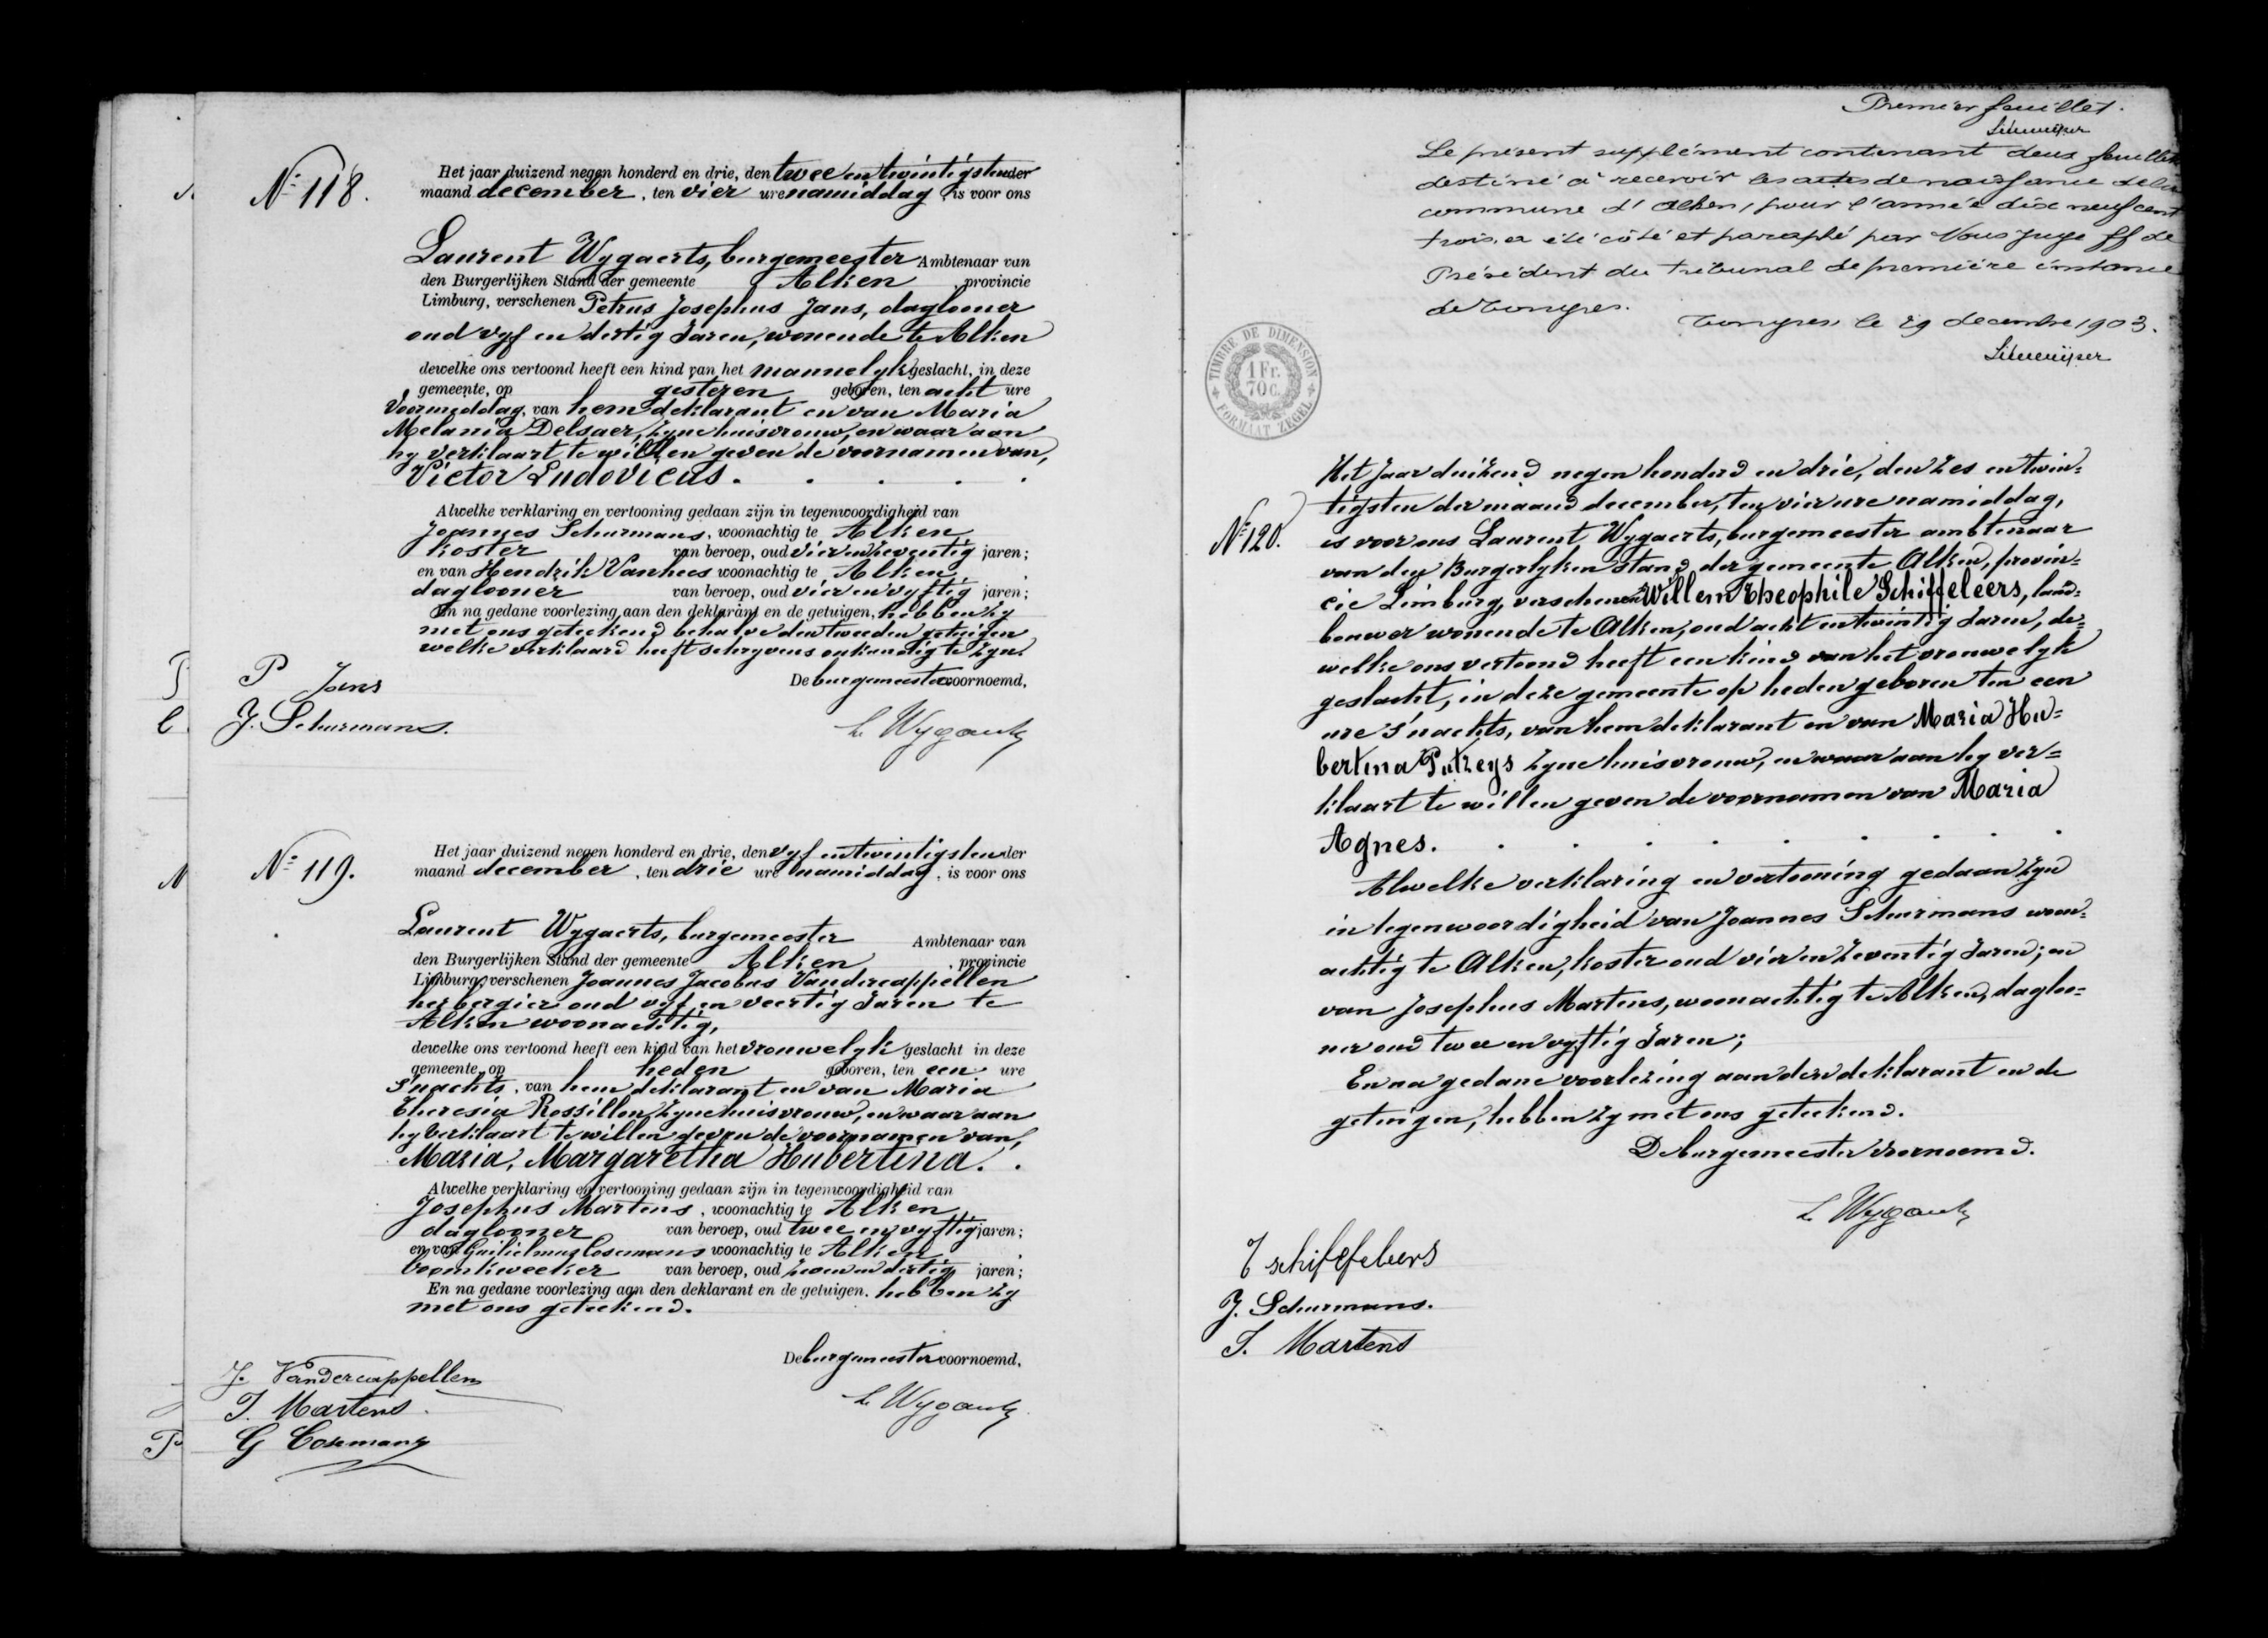 N° 118.
Het jaar duizend negen honderd en drie, den twee en twintigsten der
maand december, ten vier ure namiddag, is voor ons
Laurent Wygaerts, burgemeester Ambtenaar van
den Burgerlijken Stand der gemeente Alken, provincie
Limburg, verschenen Petrus Josephus Jans, daglooner
oud vyf en dertig Jaren, wonende te Alken
dewelke ons vertoond heeft een kind van het mannelyk geslacht, in deze
gemeente, op gisteren geboren, ten acht ure
Voormiddag, van hem deklarant en van Maria
Melania Delsaer, zyne huisvrouw, en waar aan
hy verklaart te willen geven de voornamen van,
Victor Ludovicus. . . . .
Alwelke verklaring en vertooning gedaan zijn in tegenwoordigheid van
Joannes Schurmans, woonachtig te Alken
Koster van beroep, oud vier en zeventig jaren;
en van Hendrik Vanhees woonachtig te Alken,
daglooner van beroep, oud vier en vyftig jaren;
En na gedane voorlezing aan den deklarant en de getuigen, hebben zy
met ons geteekend behalve den tweeden getuigen
welke verklaard heeft schryvens onkundig te zyn.
De burgemeester voornoemd,
P Jans
J. Schurmans.
L Wygaerts
N° 119.
Het jaar duizend negen honderd en drie, den vyf en twintigsten der
maand december, ten drie ure namiddag, is voor ons
Laurent Wygaerts, burgemeester Ambtenaar van
den Burgerlijken Stand der gemeente Alken, provincie
Limburg, verschenen Joannes Jacobus Vandercappellen
herbergier oud vyf en veertig Jaren te
Alken woonachtig,
dewelke ons vertoond heeft een kind van het vrouwelyk geslacht in deze
gemeente, op heden geboren, ten een ure
s'nachts, van hem deklarant en van Maria
Theresia Rossillon, zyne huisvrouw, en waar aan
hy verklaart te willen geven de voornamen van,
Maria, Margaretha Hubertina. .
Alwelke verklaring en vertooning gedaan zijn in tegenwoordigheid van
Josephus Martens, woonachtig te Alken,
daglooner van beroep, oud twee en vyftig jaren;
en van Guilielmus Cosemans woonachtig te Alken
boomkweeker van beroep, oud en dertig jaren;
En na gedane voorlezing aan den deklarant en de getuigen. hebben zy
met ons geteekend.
De burgemeester voornoemd,
J. Vandercappellen
J. Martens.
G Cosemans
L Wygaerts
Premier feuillet.
Le présent supplément contenant deux feuillets
destiné à recevoir les actes de naissance de la
commune d'Alken, pour l'année dix neuf cent
trois, a été côté et paraphé par Nous Juge ff de
Président du tribunal de première instance
de Tongres.
Tongres le 29 decembre 1903.
TIMBRE DE DIMENSION
1 Fr.
70 c.
FORMAAT ZEGEL
N° 120.
Het Jaar duizend negen honderd en drie, den zes en twin=
tigsten der maand december, ten vier ure namiddag,
is voor ons Laurent Wygaerts, burgemeester ambtenaar
van den Burgerlyken Stand der gemeente Alken, provin=
cie Limburg, verschenen Willem Theophile Schiffeleers, land=
bouwer wonende te Alken, oud acht en twintig Jaren, de=
welke ons vertoond heeft een kind van het vrouwelyk
geslacht, in deze gemeente op heden geboren ten een
ure s'nachts, van hem deklarant en van Maria Hu=
bertina Putzeys zyne huisvrouw, en waar aan hy ver=
klaart te willen geven de voornamen van Maria
Agnes. . . . . . . . .
Alwelke verklaring en vertooning gedaan zyn
in tegenwoordigheid van Joannes Schurmans woon=
achtig te Alken, koster oud vier en zeventig Jaren; en
van Josephus Martens, woonachtig te Alken, dagloo=
ner oud twee en vyftig Jaren;
En na gedane voorlezing aan den deklarant en de
getuigen, hebben zy met ons geteekend.
De burgemeester voornoemd.
L Wygaerts
T schiffeleers
J. Schurmans.
J. Martens